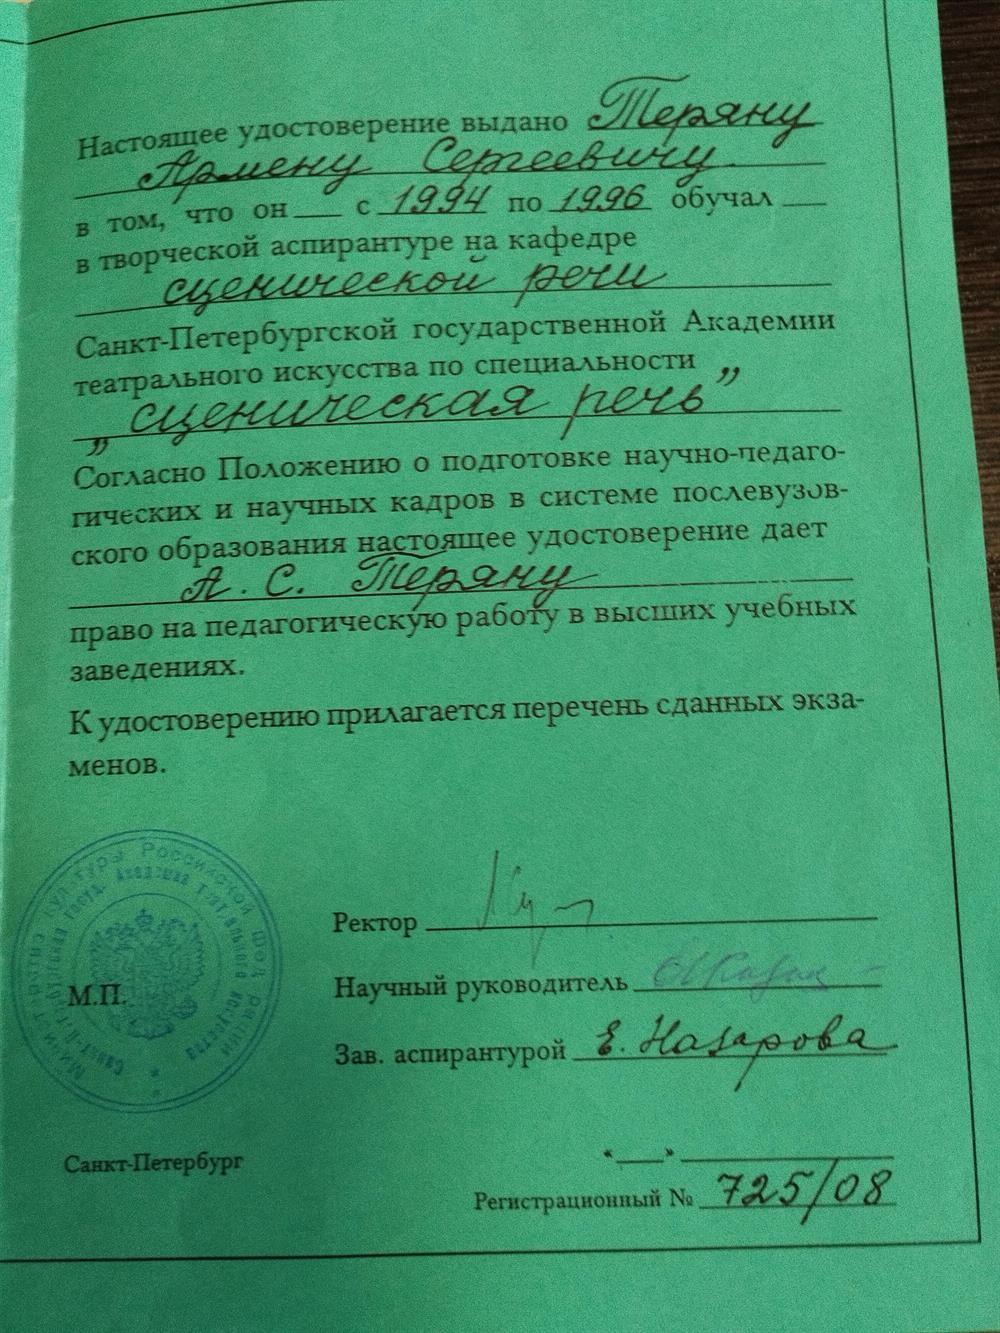 Настоящее удостоверение выдано Теряну
Армену Сергеевичу
в том, что он с 1994 по 1996 обучал
в творческой аспирантуре на кафедре
сценической речи
Санкт-Петербургской государственной Академии
театрального искусства по специальности
„ сценическая речь ”
Согласно Положению о подготовке научно-педаго-
гических и научных кадров в системе послевузов-
ского образования настоящее удостоверение дает
А. С. Теряну
право на педагогическую работу в высших учебных
заведениях.
К удостоверению прилагается перечень сданных экза-
менов.
Министерство культуры Российской Федерации
Санкт-Петербургская госуд. Академия театрального искусства
Ректор
М.П.
Научный руководитель
Зав. аспирантурой Е. Назарова
Санкт-Петербург
« »
Регистрационный № 725/08